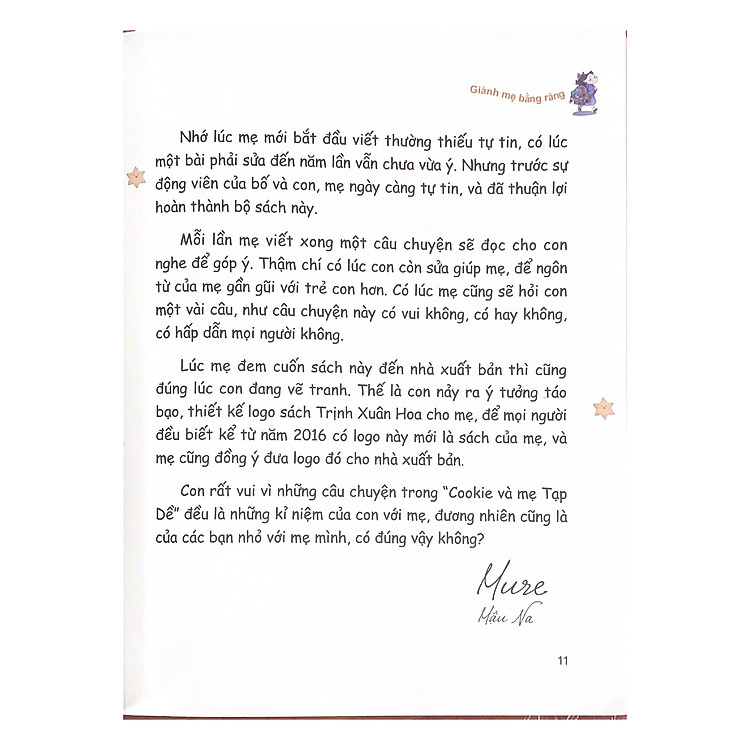 Giành mẹ bằng răng
Nhớ lúc mẹ mới bắt đầu viết thường thiếu tự tin, có lúc
một bài phải sửa đến năm lần vẫn chưa vừa ý. Nhưng trước sự
động viên của bố và con, mẹ ngày càng tự tin, và đã thuận lợi
hoàn thành bộ sách này.
Mỗi lần mẹ viết xong một câu chuyện sẽ đọc cho con
nghe để góp ý. Thậm chí có lúc con còn sửa giúp mẹ, để ngôn
từ của mẹ gần gũi với trẻ con hơn. Có lúc mẹ cũng sẽ hỏi con
một vài câu, như câu chuyện này có vui không, có hay không,
có hấp dẫn mọi người không.
Lúc mẹ đem cuốn sách này đến nhà xuất bản thì cũng
đúng lúc con đang vẽ tranh. Thế là con nảy ra ý tưởng táo
bạo, thiết kế logo sách Trịnh Xuân Hoa cho mẹ, để mọi người
đều biết kể từ năm 2016 có logo này mới là sách của mẹ, và
mẹ cũng đồng ý đưa logo đó cho nhà xuất bản.
Con rất vui vì những câu chuyện trong “Cookie và mẹ Tạp
Dề” đều là những kỉ niệm của con với mẹ, đương nhiên cũng là
của các bạn nhỏ với mẹ mình, có đúng vậy không?
Mure
Mậu Na
11